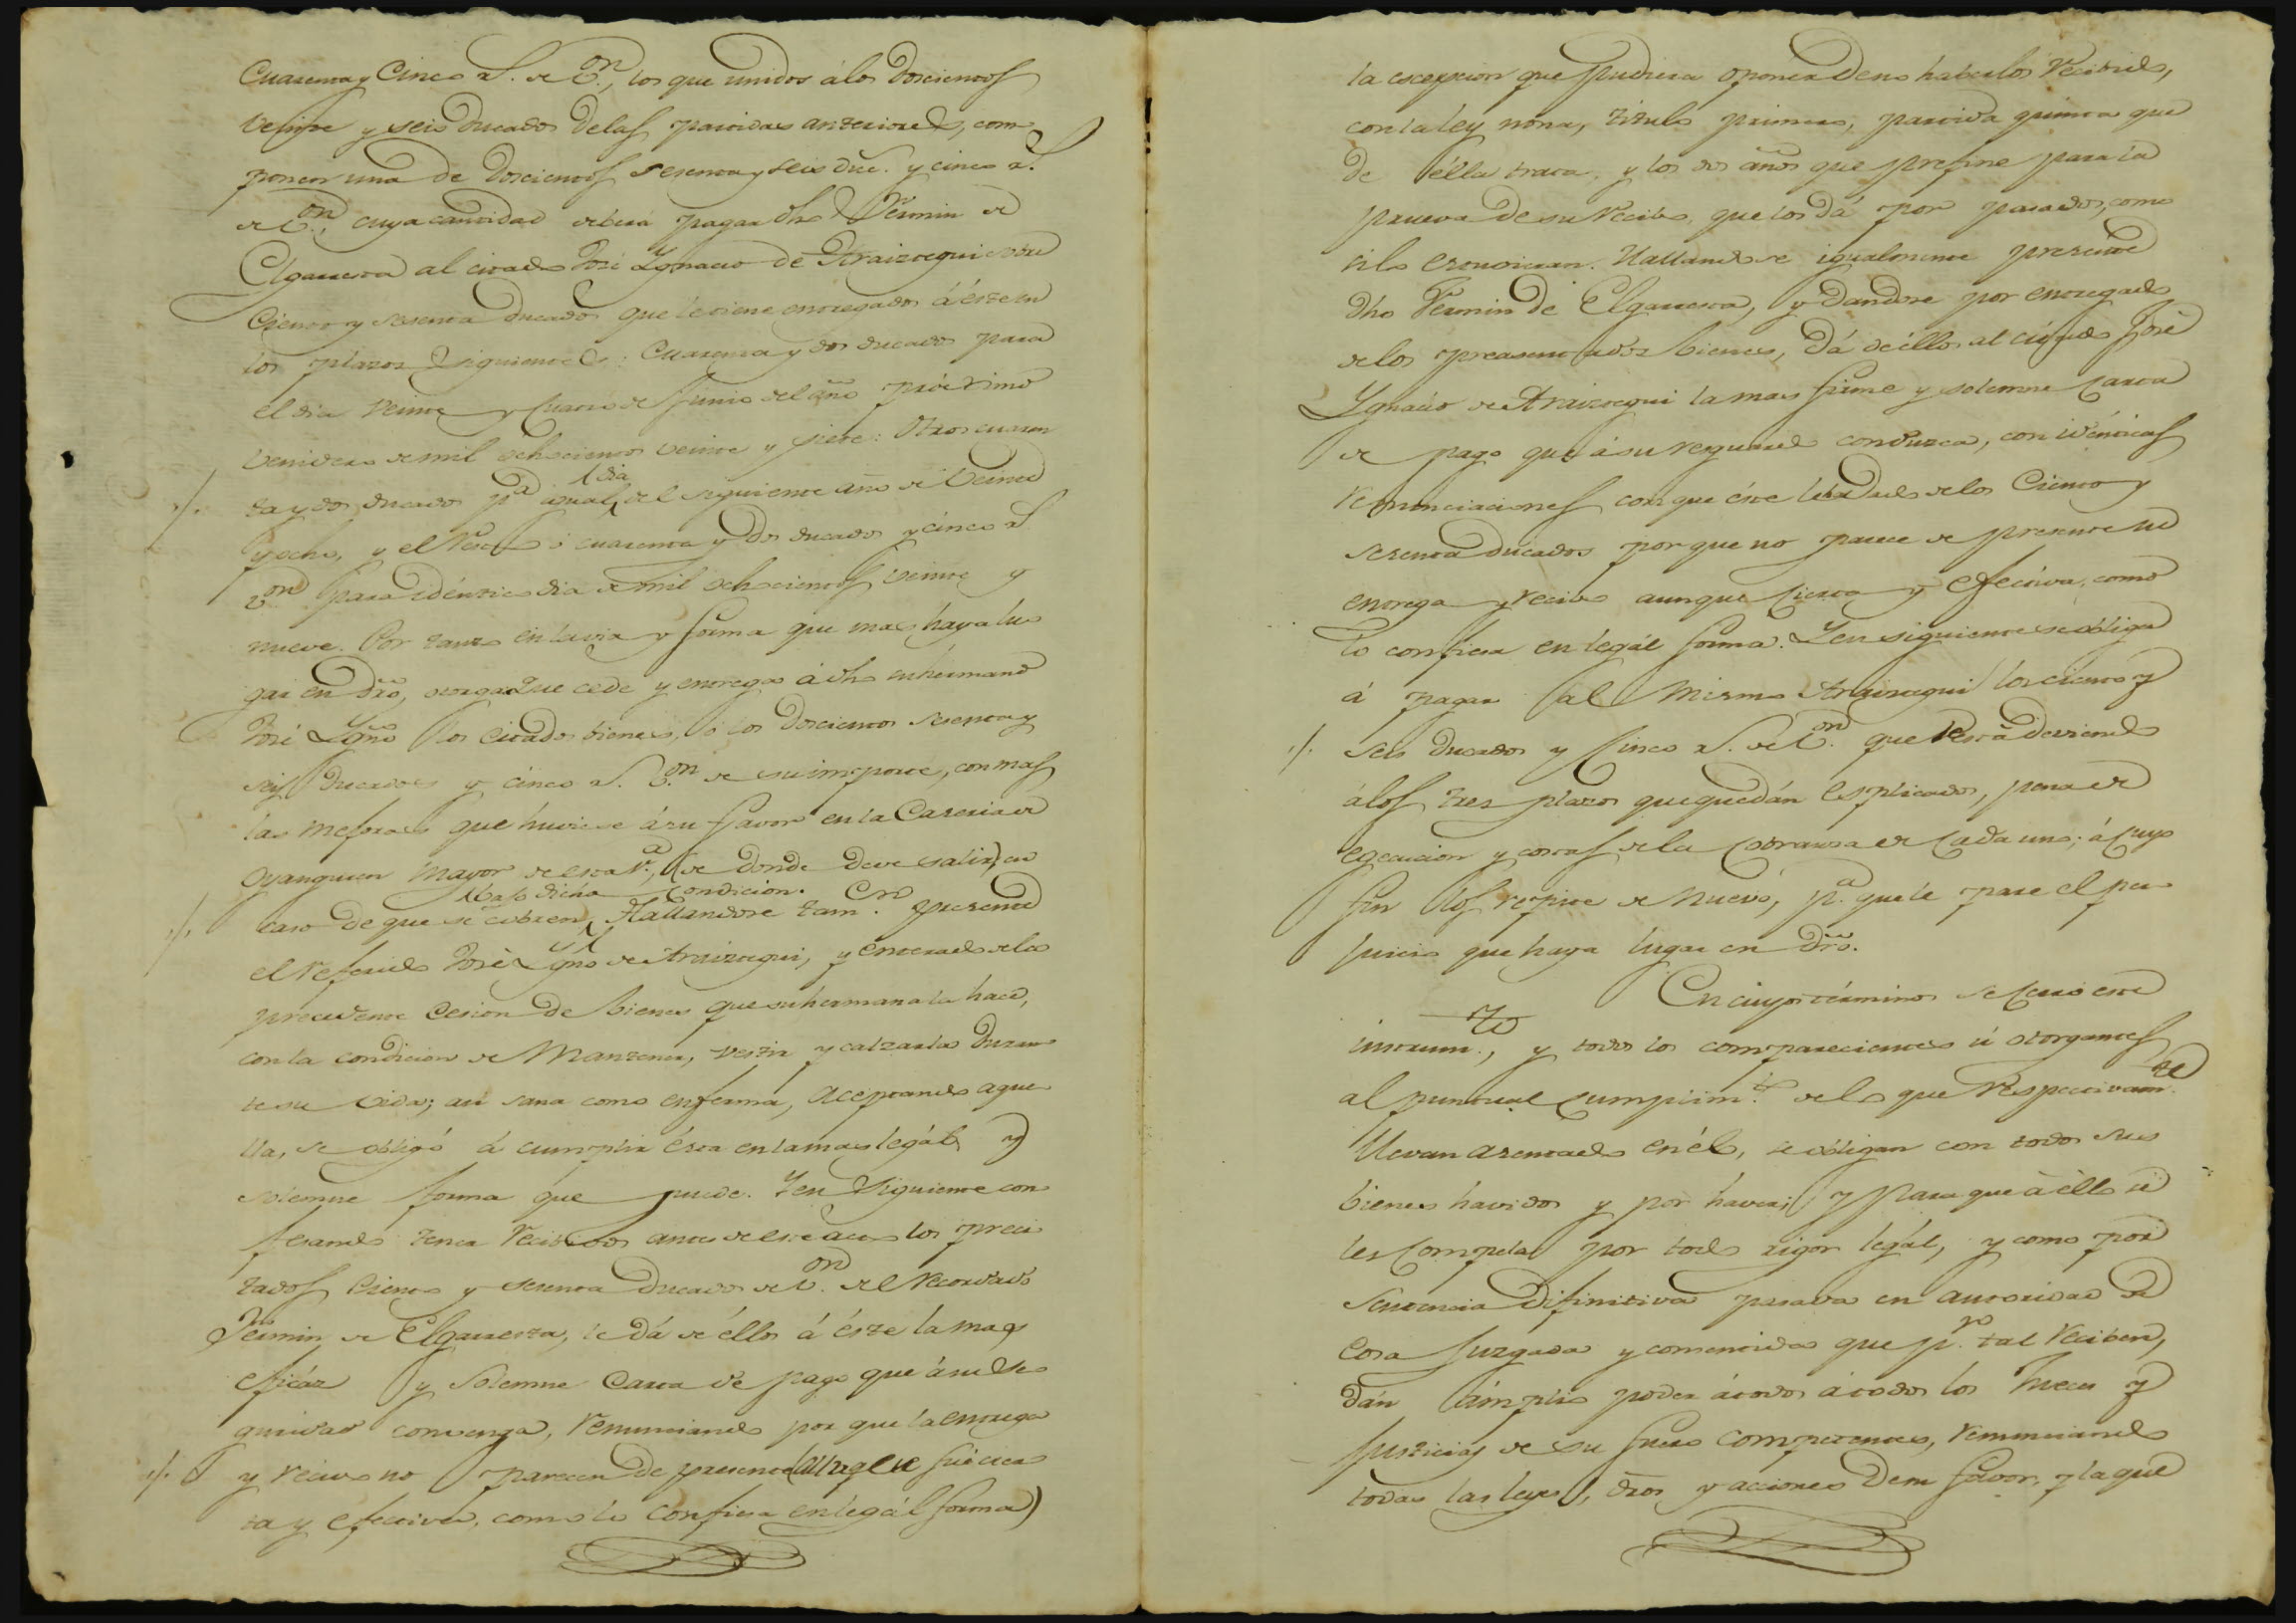 Cuarenta y Cinco r.s de v.on, los que unidos á los Doscientos
veinte y seis Ducados de las partidas anteriores, com-
ponen una de Doscientos sesenta y seis duc.s y cinco r.s
de v.on, cuya cantidad deberá pagar dho Fermin de
Elgarresta al citado José Ygnacio de Araiztegui sobre
Ciento y sesenta ducados que le tiene entregados á éste en
los plazos siguientes: Cuarenta y dos ducados para
el dia veinte y cuatro de Junio del año próximo
venidero de mil ochocientos veinte y siete: Otros cuaren-
ta y dos ducados p.a igual dia del siguiente año de veinte
y ocho, y el resto ó cuarenta y dos ducados y cinco r.s
v.on para idéntico dia de mil ochocientos veinte y
nueve. Por tanto en la via y forma que mas haya lu-
gar en dro, otorga que cede y entrega á dho su hermano
José Ygño los citados bienes, ó los Doscientos sesenta y
seis Ducados y cinco r.s v.on de su importe, con mas
las mejoras que huviese á su favor en la Caseria de
Oyanguren mayor de esta v.a, (de donde deve salir) en
caso de que se cobren, bajo dicha condicion. Hallandose tam.en presente
el referido José Ygño de Araiztegui, y enterado de la
precedente Cesion de bienes que su hermana la hace,
con la condicion de Mantener, vestir y calzarla Duran-
te su vida; asi sana como enferma, aceptando aque-
lla, se obligó á cumplir ésta en la mas legál y
solemne forma que puede. Y en siguiente con-
fesando tener recibidos antes de este acto los preci-
tados Ciento y sesenta Ducados de v.on del recordado
Fermin de Elgarresta, le dá de éllos á éste la mas
eficáz y solemne Carta de pago que á su se-
guridad convenga, renunciando por que la entrega
y recivo no parecen de presente (aunque fué cier-
ta y efectiva, como lo confiesa en legál forma)
la escepcion que pudiera oponer De no haberlos recibido,
con la ley nona, titulo primero, partida quinta que
de élla trata, y los dos años que prefine para la
prueva de su recibo, que los dá por pasados, como
si lo estuvieran. Hallandose igualmente presente
dho Fermin de Elgarresta, y dandose por entregado
de los preasentados bienes, dá de éllos al citado José
Ygnacio de Araiztegui la mas firme y solemne Carta
de pago que á su resguardo conduzca, con idénticas
renunciaciones con que éste le ha dado de los Ciento y
sesenta Ducados por que no parece de presente su
entrega y recibo aunque cierta y efectiva, como
lo confiesa en legál forma. Y en siguiente se obliga
á pagar al mismo Araiztegui los ciento y
seis Ducados y Cinco r.s de v.on que le está deviendo
á los tres plazos que quedán esplicados, pena de
egecucion y costas de la cobranza de cada uno; á cuyo
fin los repite de nuevo, p.a que le pare el per-
juicio que haya lugar en dro.
En cuyos términos se cerró este
instrum.to, y todos los comparecientes ú otorgantes
al puntual cumplim.to de lo que respectivam.te
llevan asentado en él, se obligan con todos sus
bienes havidos y por haver; y para que á éllo se
les compela por todo rigor legál, y como por
Sentencia difinitiva pasada en autoridad de
Cosa Juzgada y consentida que p.r tal reciben,
dán ámplio poder á todos á todos los Jueces y
Justicias de su fuero competentes, renunciando
todas las leyes, dros y acciones De su favor, y la que